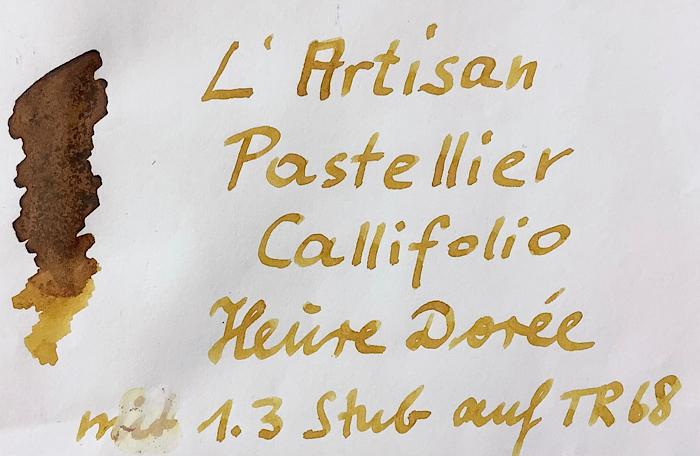 L'Artisan
Pastellier
Callifolio
Heure Dorée
mit 1.3 Stub auf TR68